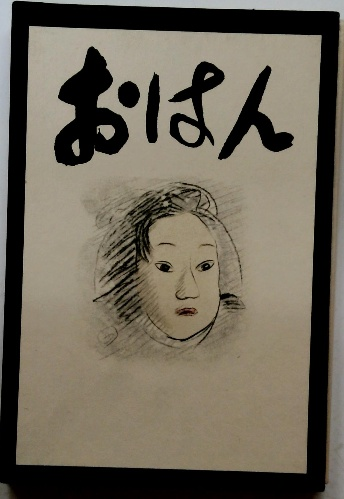 おはん